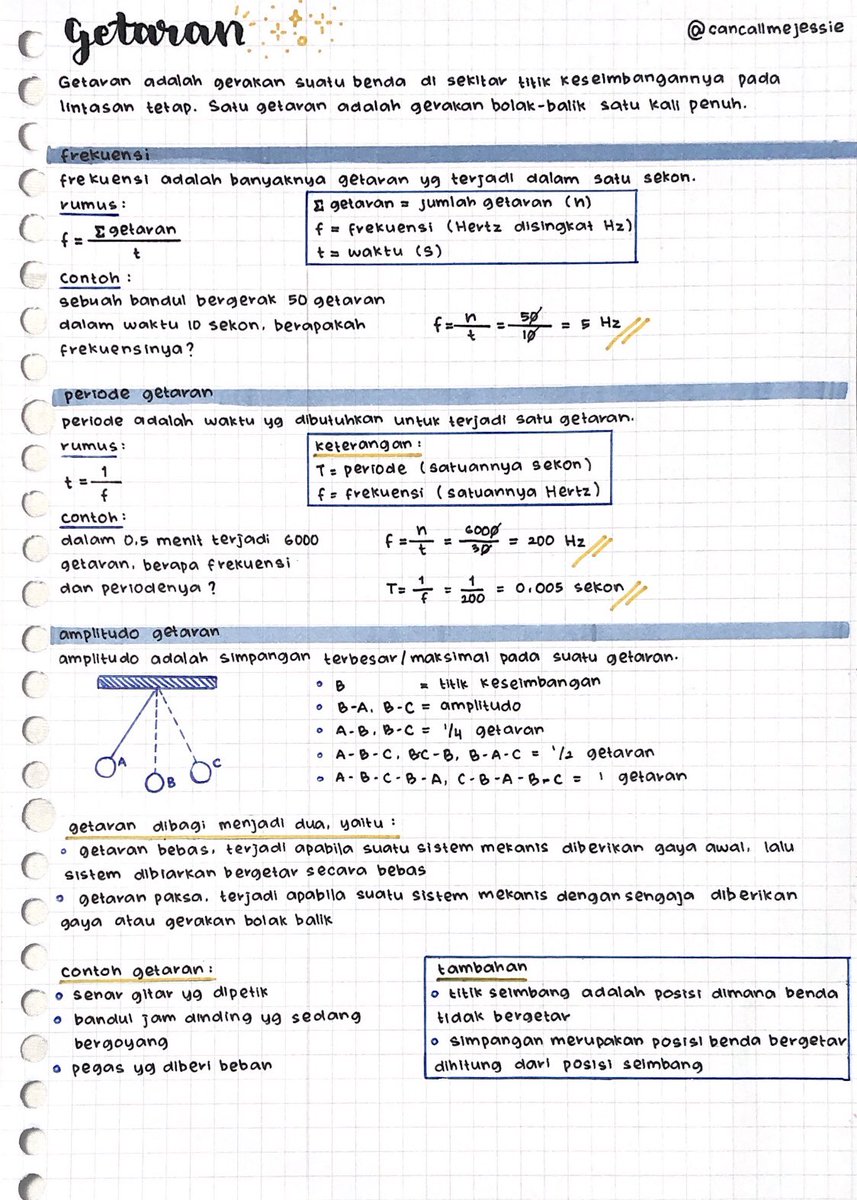 Getaran
@cancallmejessie
Getaran adalah gerakan suatu benda di sekitar titik keseimbangannya pada
lintasan tetap. Satu getaran adalah gerakan bolak-balik satu kali penuh.
frekuensi
frekuensi adalah banyaknya getaran yg terjadi dalam satu sekon.
rumus:
f = Σ getaran / t
Σ getaran = jumlah getaran (n)
f = frekuensi (Hertz disingkat Hz)
t = waktu (s)
contoh :
sebuah bandul bergerak 50 getaran
dalam waktu 10 sekon, berapakah
frekuensinya?
f = n/t = 50/10 = 5 Hz
periode getaran
periode adalah waktu yg dibutuhkan untuk terjadi satu getaran.
rumus:
t = 1/f
keterangan :
T = periode (satuannya sekon)
f = frekuensi (satuannya Hertz)
contoh:
dalam 0,5 menit terjadi 6000
getaran, berapa frekuensi
dan periodenya ?
f = n/t = 6000/30 = 200 Hz
T = 1/f = 1/200 = 0,005 sekon
amplitudo getaran
amplitudo adalah simpangan terbesar/maksimal pada suatu getaran.
A
B
C
• B = titik keseimbangan
• B-A, B-C = amplitudo
• A-B, B-C = 1/4 getaran
• A-B-C, BC-B, B-A-C = 1/2 getaran
• A-B-C-B-A, C-B-A-B-C = 1 getaran
getaran dibagi menjadi dua, yaitu :
• getaran bebas, terjadi apabila suatu sistem mekanis diberikan gaya awal, lalu
sistem dibiarkan bergetar secara bebas
• getaran paksa, terjadi apabila suatu sistem mekanis dengan sengaja diberikan
gaya atau gerakan bolak balik
contoh getaran :
• senar gitar yg dipetik
• bandul jam dinding yg sedang
bergoyang
• pegas yg diberi beban
tambahan
• titik seimbang adalah posisi dimana benda
tidak bergetar
• simpangan merupakan posisi benda bergetar
dihitung dari posisi seimbang